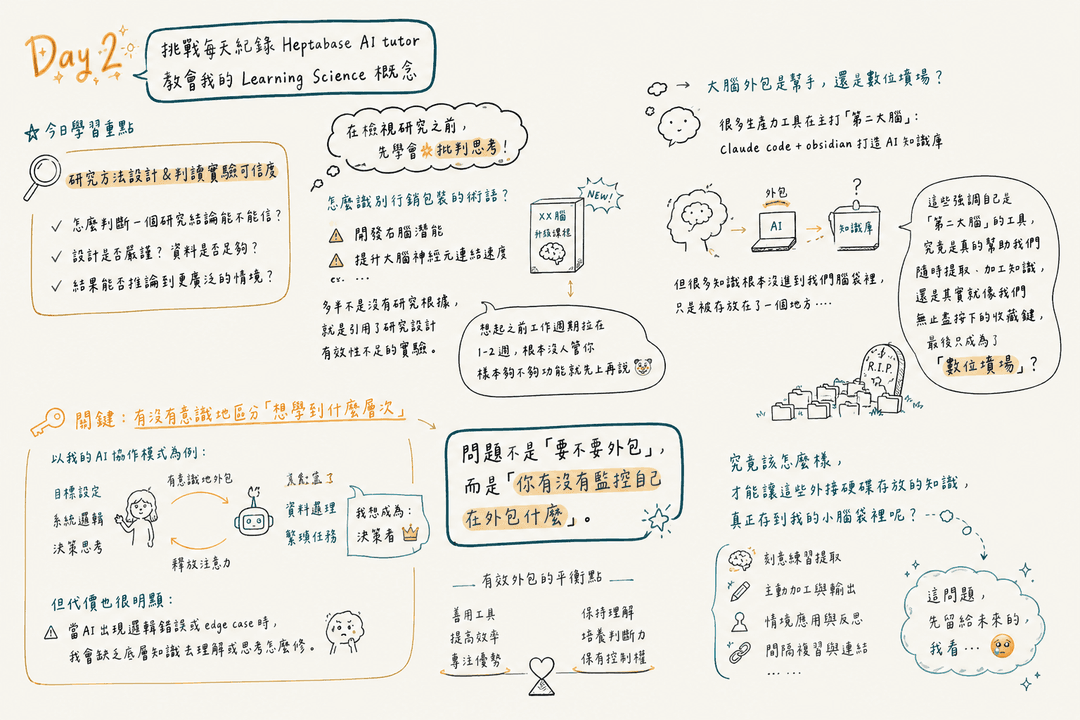 Day 2
挑戰每天紀錄 Heptabase AI tutor
教會我的 Learning Science 概念
今日學習重點
研究方法設計 & 判讀實驗可信度
✓ 怎麼判斷一個研究結論能不能信？
✓ 設計是否嚴謹？資料是否足夠？
✓ 結果能否推論到更廣泛的情境？
在檢視研究之前，
先學會批判思考！
怎麼識別行銷包裝的術語？
開發右腦潛能
提升大腦神經元連結速度
ex. ...
多半不是沒有研究根據，
就是引用了研究設計
有效性不足的實驗。
NEW!
XX 腦
升級課程
想起之前工作週期拉在
1-2 週，根本沒人管你
樣本夠不夠功能就先上再說
→ 大腦外包是幫手，還是數位墳場？
很多生產力工具在主打「第二大腦」：
Claude code + obsidian 打造 AI 知識庫
外包
AI
?
知識庫
但很多知識根本沒進到我們腦袋裡，
只是被存放在了一個地方....
這些強調自己是
「第二大腦」的工具，
究竟是真的幫助我們
隨時提取、加工知識，
還是其實就像我們
無止盡按下的收藏鍵，
最後只成為了
「數位墳場」？
R.I.P.
關鍵：有沒有意識地區分「想學到什麼層次」
以我的 AI 協作模式為例：
目標設定
系統邏輯
決策思考
有意識地外包
釋放注意力
資料處理
繁瑣任務
我想成為：
決策者
但代價也很明顯：
當AI 出現邏輯錯誤或 edge case 時，
我會缺乏底層知識去理解或思考怎麼修。
問題不是「要不要外包」，
而是「你有沒有監控自己
在外包什麼」。
有效外包的平衡點
善用工具
提高效率
專注優勢
保持理解
培養判斷力
保有控制權
究竟該怎麼樣，
才能讓這些外接硬碟存放的知識，
真正存到我的小腦袋裡呢？
刻意練習提取
主動加工與輸出
情境應用與反思
間隔複習與連結
... ...
這問題，
先留給未來的，
我看...